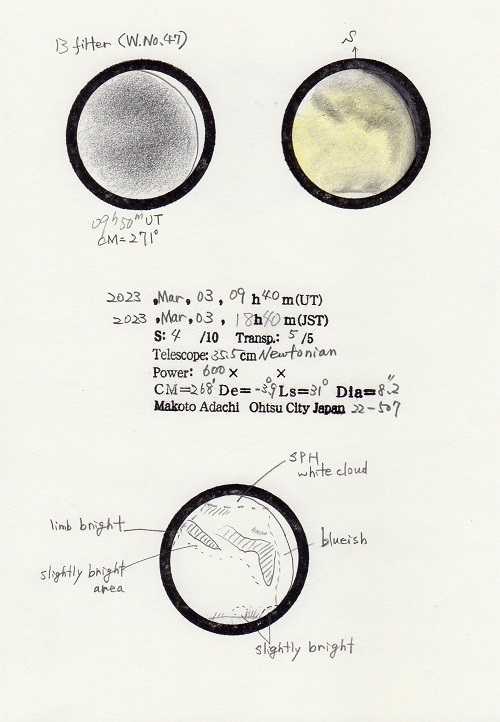 B filter (W.No.47)
S
09h50mUT
CM=271°
2023 ,Mar, 03, 09 h 40 m(UT)
2023 ,Mar, 03, 18h40 m(JST)
S: 4 /10 Transp.: 5 /5
Telescope: 35.5cm Newtonian
Power: 600 × ×
CM=268° De=-3.9° Ls=31° Dia=8.2"
Makoto Adachi Ohtsu City Japan 22-507
SPH
white cloud
limb bright
blueish
slightly bright
area
slightly bright